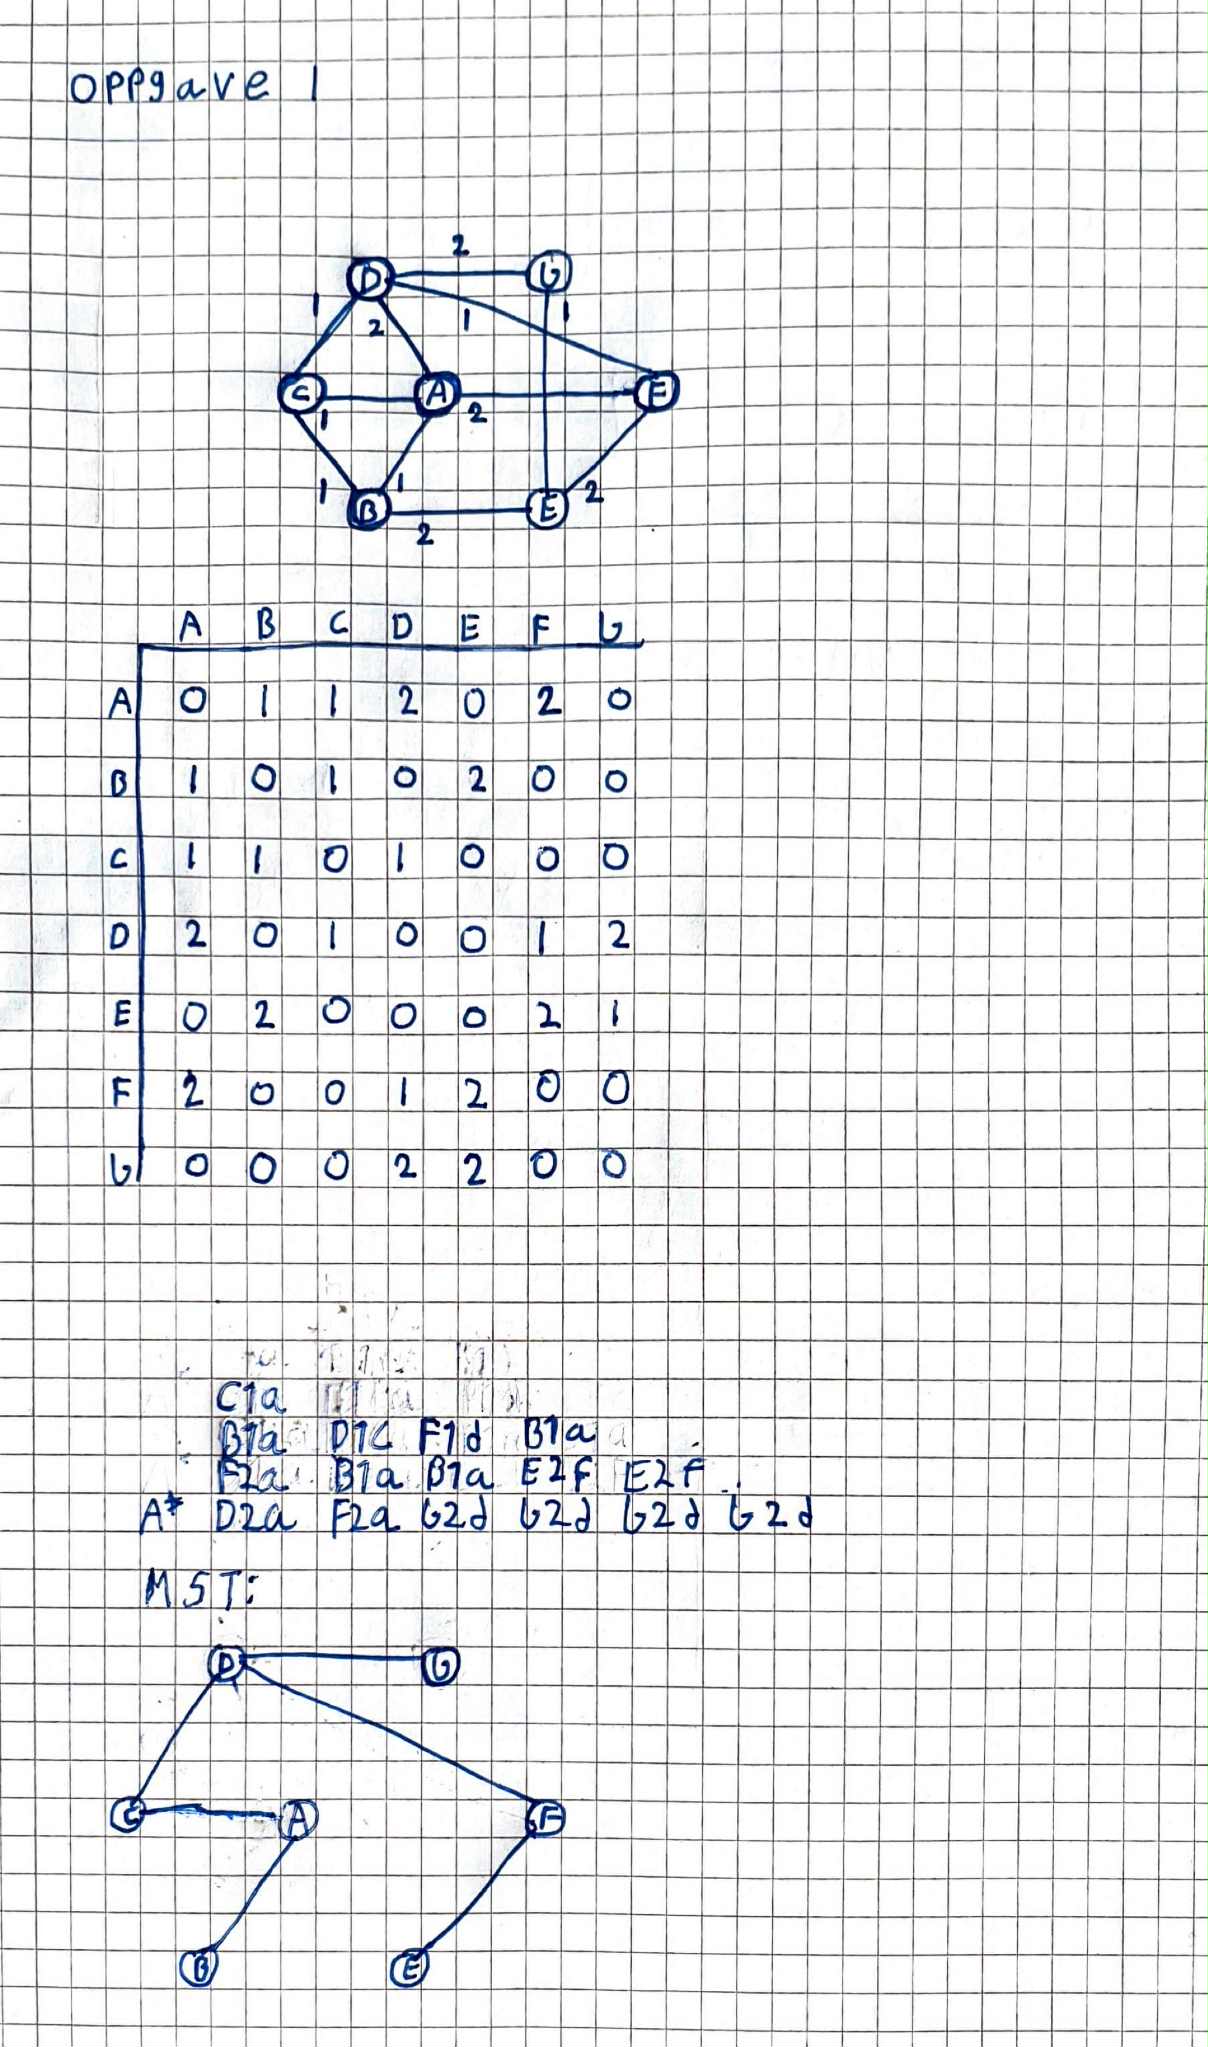 oppgave 1
2
D G
1 2 1 1
C A F
1 2
1 1 2
B E
2
A B C D E F G
A 0 1 1 2 0 2 0
B 1 0 1 0 2 0 0
C 1 1 0 1 0 0 0
D 2 0 1 0 0 1 2
E 0 2 0 0 0 2 1
F 2 0 0 1 2 0 0
G 0 0 0 2 2 0 0
C1a
B1a D1c F1d B1a
F2a B1a B1a E2f E2f
A* D2a F2a G2d G2d G2d G2d
MST:
D G
C A F
B E